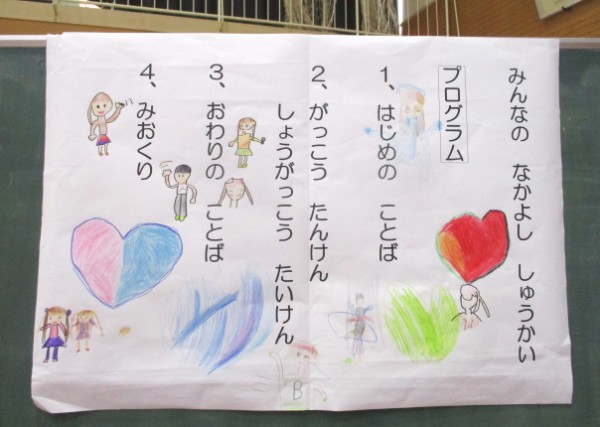 みんなの なかよし しゅうかい
プログラム
1、はじめの ことば
2、がっこう たんけん
しょうがっこう たいけん
3、おわりの ことば
4、みおくり
B